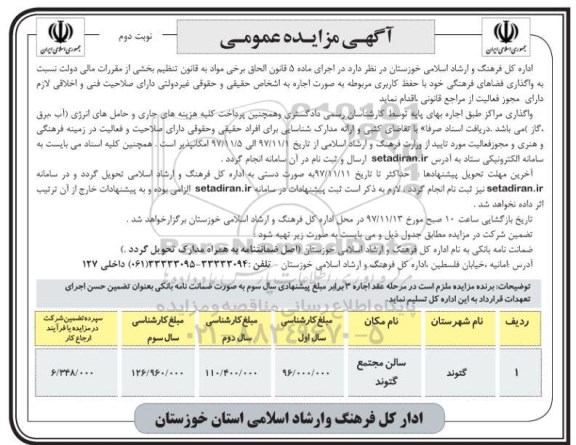 جمهوری اسلامی ایران
آگهـی مزایـده عمومـی
نوبت دوم
جمهوری اسلامی ایران
اداره کل فرهنگ و ارشاد اسلامی خوزستان در نظر دارد در اجرای ماده ۵ قانون الحاق برخی مواد به قانون تنظیم بخشی از مقررات مالی دولت نسبت
به واگذاری فضاهای فرهنگی خود با حفظ کاربری مربوطه به صورت اجاره به اشخاص حقیقی و حقوقی غیردولتی دارای صلاحیت فنی و اخلاقی لازم
دارای مجوز فعالیت از مراجع قانونی ،اقدام نماید
واگذاری مراکز طبق اجاره بهای پایه توسط کارشناسان رسمی دادگستری وهمچنین پرداخت کلیه هزینه های جاری و حامل های انرژی (آب ،برق
،گاز )می باشد .دریافت اسناد صرفا» با تقاضای کتبی و ارائه مدارک شناسایی برای افراد حقیقی وحقوقی دارای صلاحیت و فعالیت در زمینه فرهنگی
و هنری و مجوزفعالیت مورد تایید از وزارت فرهنگ و ارشاد اسلامی از تاریخ ۹۷/۱۱/۱ الی ۹۷/۱۱/۵ امکانپذیر است . همچنین کلیه اسناد می بایست به
سامانه الکترونیکی ستاد به آدرس setadiran.ir ارسال و ثبت نام در آن سامانه انجام گردد .
آخرین مهلت تحویل پیشنهادها : حداکثر تا تاریخ ۹۷/۱۱/۱۱به صورت دستی به اداره کل فرهنگ و ارشاد اسلامی تحویل گردد و در سامانه
setadiran.ir نیز ثبت نام انجام گردد. لازم به ذکر است ثبت پیشنهادات در سامانه setadiran.ir الزامی بوده و به پیشنهادات خارج از آن ترتیب
اثر داده نخواهد شد .
تاریخ بازگشایی ساعت ۱۰ صبح مورخ ۹۷/۱۱/۱۳ در محل اداره کل فرهنگ و ارشاد اسلامی خوزستان برگزارخواهد شد .
تضمین شرکت در مزایده مطابق جدول ذیل و می بایست به صورت زیر تهیه شود :
ضمانت نامه بانکی به نام اداره کل فرهنگ و ارشاد اسلامی خوزستان (اصل ضمانتنامه به همراه مدارک تحویل گردد .)
آدرس :امانیه ،خیابان فلسطین ،اداره کل فرهنگ و ارشاد اسلامی خوزستان – تلفن :۳۳۳۳۳۰۹۴-۳۳۳۳۳۰۹۵(۰۶۱) داخلی ۱۲۷
توضیحات: برنده مزایده ملزم است در مرحله عقد اجاره ۳ برابر مبلغ پیشنهادی سال سوم به صورت ضمانت نامه بانکی بعنوان تضمین حسن اجرای
تعهدات قرارداد به این اداره کل تسلیم نماید
ردیف نام شهرستان نام مکان مبلغ کارشناسی سال اول مبلغ کارشناسی سال دوم مبلغ کارشناسی سال سوم سپرده تضمین شرکت در مزایده یا فرآیند ارجاع کار
۱ گتوند سالن مجتمع گتوند ۹۶/۰۰۰/۰۰۰ ۱۱۰/۴۰۰/۰۰۰ ۱۲۶/۹۶۰/۰۰۰ ۶/۳۴۸/۰۰۰
اداره کل فرهنگ وارشاد اسلامی استان خوزستان